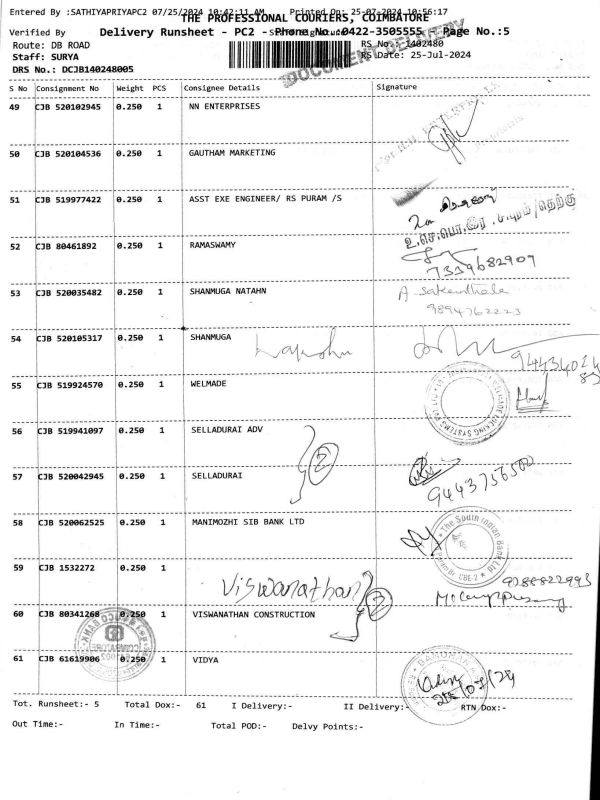 Entered By :SATHIYAPRIYAPC2 07/25/2024 10:42:11 AM Printed On: 25-07-2024 10:56:17
THE PROFESSIONAL COURIERS, COIMBATORE
Verified By Delivery Runsheet - PC2 - Phone No.:0422-3505555 Page No.:5
Route: DB ROAD RS No.: 1402480
Staff: SURYA RS Date: 25-Jul-2024
DRS No.: DCJB140248005
DOCUMENT DELIVERY
S No Consignment No Weight PCS Consignee Details Signature
49 CJB 520102945 0.250 1 NN ENTERPRISES
50 CJB 520104536 0.250 1 GAUTHAM MARKETING
51 CJB 519977422 0.250 1 ASST EXE ENGINEER/ RS PURAM /S
52 CJB 80461892 0.250 1 RAMASWAMY
7339682909
53 CJB 520035482 0.250 1 SHANMUGA NATAHN
9894762223
54 CJB 520105317 0.250 1 SHANMUGA
55 CJB 519924570 0.250 1 WELMADE
56 CJB 519941097 0.250 1 SELLADURAI ADV
2
57 CJB 520042945 0.250 1 SELLADURAI
9443756500
58 CJB 520062525 0.250 1 MANIMOZHI SIB BANK LTD
The South Indian Bank Ltd
CBE-2
59 CJB 1532272 0.250 1
Viswanathan
2
60 CJB 80341268 0.250 1 VISWANATHAN CONSTRUCTION
61 CJB 61619906 0.250 1 VIDYA
Tot. Runsheet:- 5 Total Dox:- 61 I Delivery:- II Delivery:- RTN Dox:-
Out Time:- In Time:- Total POD:- Delvy Points:-